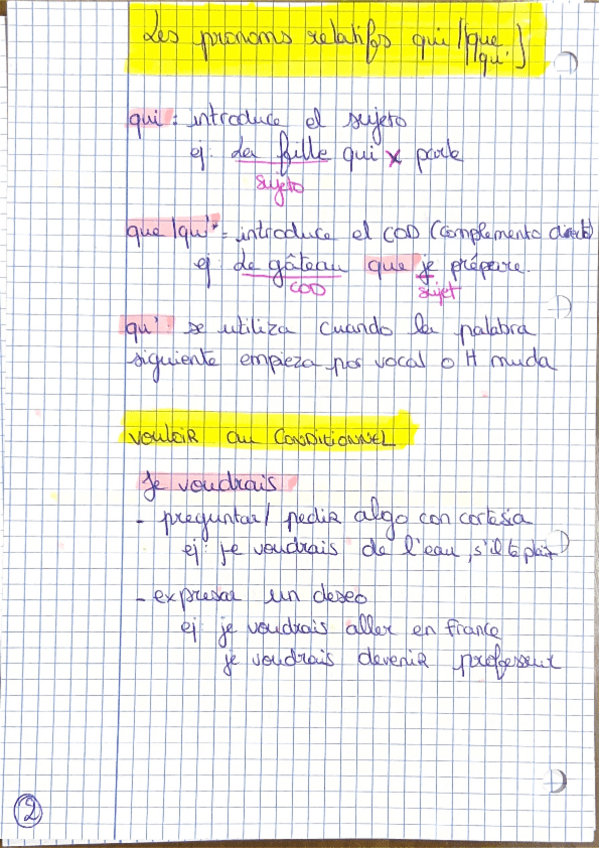 Les pronoms relatifs qui / que / qu'
qui : introduce el sujeto
ej: La fille qui x parle
sujeto
que / qu' = introduce el COD (complemento directo)
ej: Le gâteau que je prépare.
COD sujet
qu' : se utiliza cuando la palabra
siguiente empieza por vocal o H muda
VOULOIR AU CONDITIONNEL
Je voudrais
- preguntar / pedir algo con cortesía
ej: je voudrais de l'eau, s'il te plaît
- expresar un deseo
ej: je voudrais aller en France
je voudrais devenir professeur
2